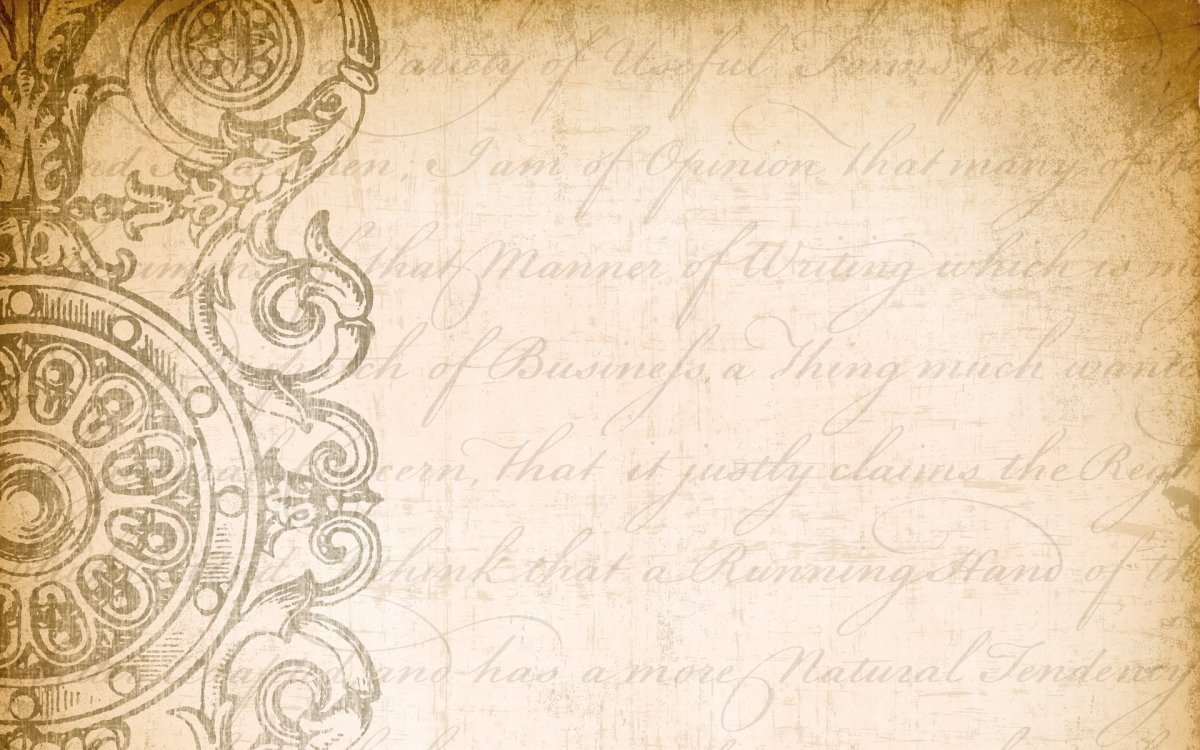 a Variety of Useful Forms practised
men, I am of Opinion that many of th
that Manner of Writing which is m
of Busineſs a Thing much wante
cern, that it justly claims the Reg
think that a Running Hand of th
and has a more Natural Tendency